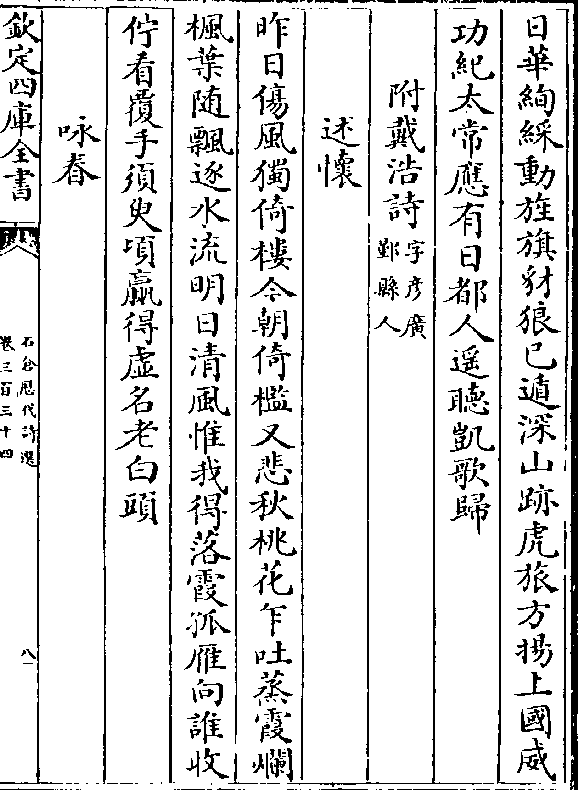 日華絢綵動旌旗豺狼已遁深山跡虎旅方揚上國威
功紀太常應有日都人遥聽凱歌歸
附戴浩詩字彦廣
鄞縣人
述懷
昨日傷風獨倚樓今朝倚檻又悲秋桃花乍吐蒸霞爛
楓葉随飄逐水流明日清風惟我得落霞孤雁向誰收
佇看覆手須臾項贏得虚名老白頭
咏春
欽定四庫全書
石倉歷代詩選
卷三百三十四
八